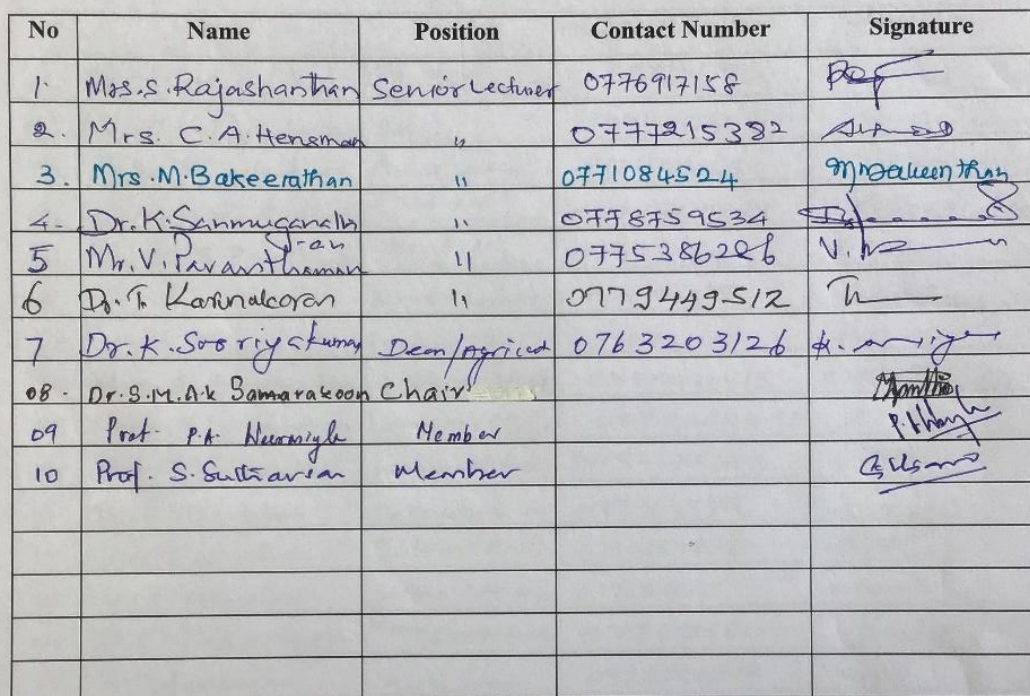 No Name Position Contact Number Signature
1. Mrs.S.Rajashanthan Senior Lecturer 0776917158
2. Mrs. C.A.Hensman " 0777215382
3. Mrs.M.Bakeerathan " 0771084524 MBakeerathan
4. Dr.K.Sanmuganath " 0778759534
an
5 Mr.V.Paranthaman " V.
6 Dr. T. Karunakaran " 0779449512
7 Dr.K.Sooriyakumar Dean/Agricul 0763203126
08. Dr.S.M.A.K Samarakoon Chair
09 Prof. P.A. Member
10 Prof. S. Member